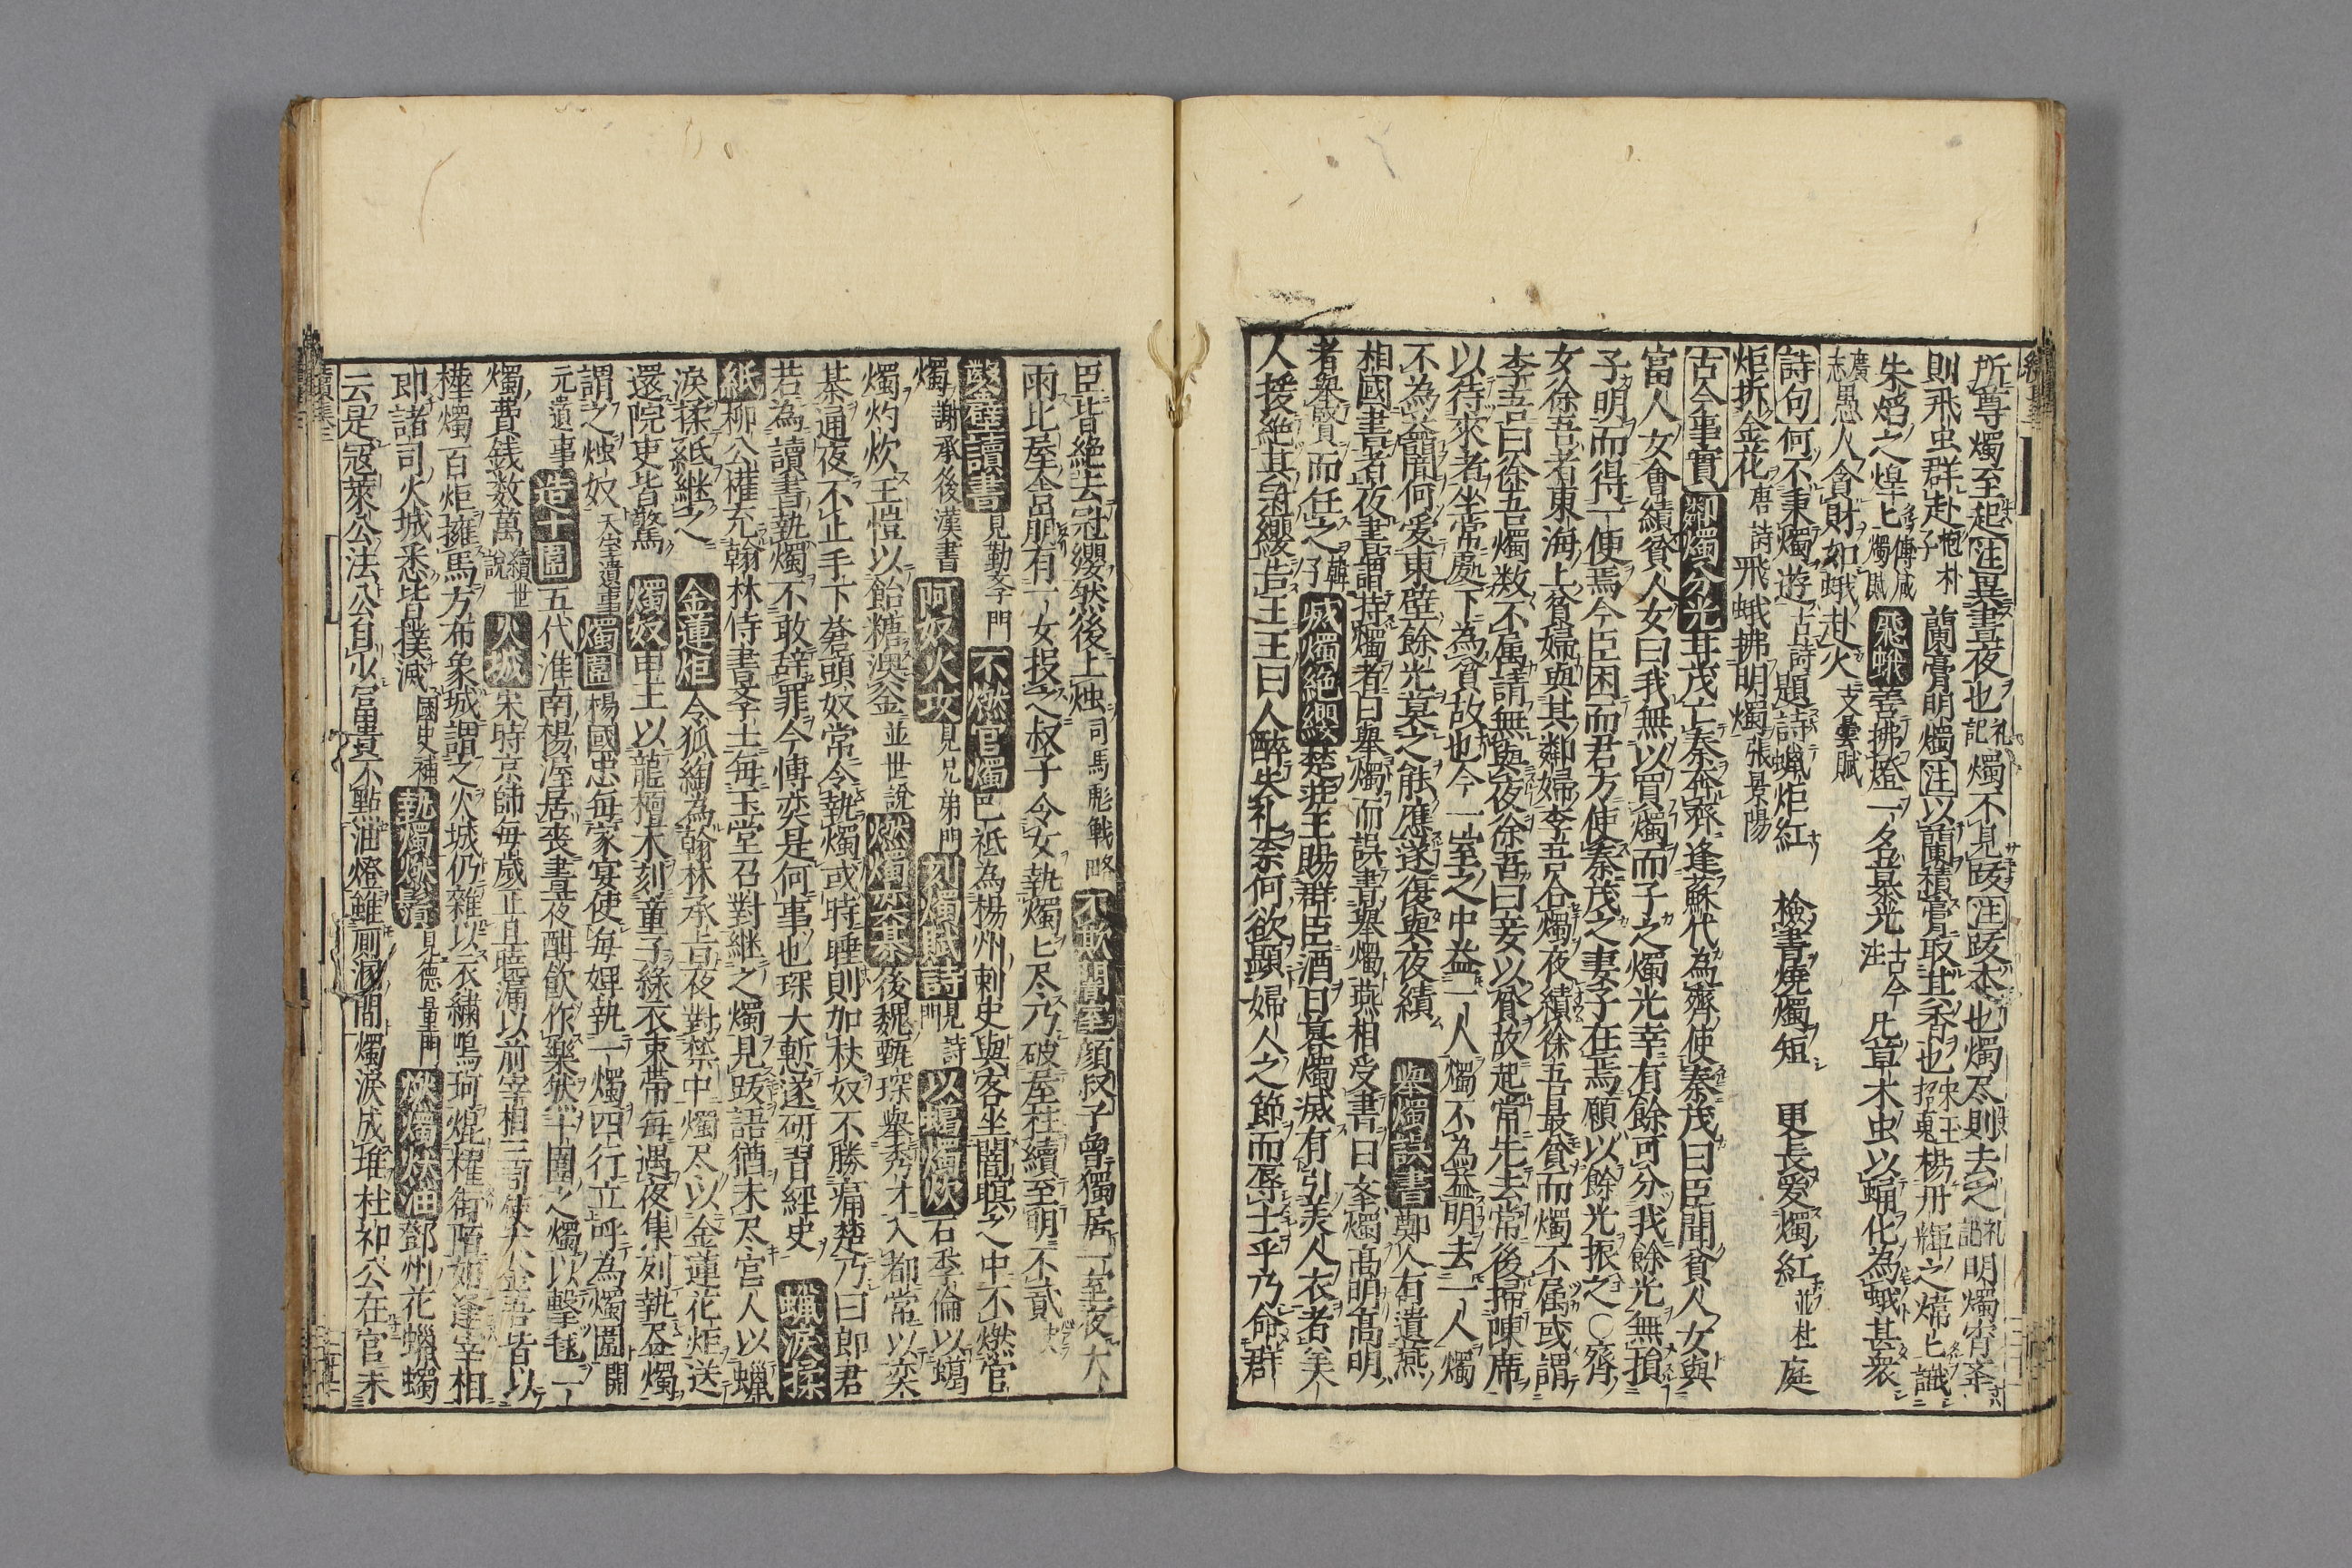 所尊燭至起注異晝夜也礼記燭不見跋注跋本也燭尽則去之礼記明燭宵

則飛虫群赴抱朴子蘭膏明燭注以蘭積膏取其香也宋玉招䰟楊丹輝之煒〻識
朱焰之煌〻傅咸燭賦飛蛾善拂燈一名慕光古今注凡草木虫以蛹化為蛾甚衆
廣志愚人貪財如蛾赴火支曇賦
詩句何不秉燭遊古詩題詩蠟炬紅檢書燒燭短更長愛燭紅並杜庭
炬拆金花唐詩飛蛾拂明燭張景陽
古今事實鄰燭分光甘茂亡秦奔齊逢蘇代為齊使秦茂曰臣聞貧人女與
富人女會績貧人女曰我無以買燭而子之燭光幸有餘可分我餘光無損
子明而得一便焉今臣困而君方使秦茂之妻子在焉願以餘光振之〇齊
女徐吾者東海上貧婦與其鄰婦李吾合燭夜績徐吾最貧而燭不属或謂
李吾曰徐吾燭数不属請無與夜徐吾曰妾以貧故起常先去常後掃陳席
以待來者坐常處下為貧故也今一室之中益一人燭不為益明去一人燭
不為益闇何愛東壁餘光莫之能應遂復與夜績擧燭誤書鄭人有遺燕
相國書者夜書謂持燭者曰擧燭而誤書擧燭燕相受書曰擧燭高明高明
者擧賢而任之韓子㓕燭絶纓楚莊王賜群臣酒日暮燭滅有引美人衣者美
人援絶其冠纓告王王曰人醉失礼奈何欲顯婦人之節而辱士乎乃命群
臣皆絶去冠纓然後上燭司馬彪戦略不欺闇室顔叔子魯獨居一室夜大
雨比屋舎崩有一女投之叔子令女執燭〻尽乃破屋柱續至明不貳史
鑿壁讀書見勤斈門不燃官燭巴祗為楊州刺史與客坐闇暝之中不燃官
燭謝承後漢書呵奴火攻見兄弟門刻燭賦詩見詩門以蠟燭炊石季倫以蠟
燭灼炊王愷以飴糖澳釜並世說燃燭奕棊後魏甄琛擧秀才入都常以奕
棊通夜不止手下蒼頭奴常令執燭或時睡則加杖奴不勝痛楚乃曰郎君
若為讀書執燭不敢辞罪今博奕是何事也琛大慚遂研習經史蠟淚揉
紙柳公權充翰林侍書斈士每玉堂召對継之燭見跋語猶未尽宮人以蠟
淚揉紙継之金蓮炬令狐綯為翰林承旨夜對禁中燭尽以金蓮花炬送
還院吏皆驚燭奴申王以龍檀木刻童子緑衣束帯每遇夜集列執畫燭
謂之燭奴天宝遺事燭圍楊國忠每家宴使每婢執一燭四行立呼為燭圍開
元遺事造十圍五代淮南楊渥居喪晝夜酣飲作樂然十圍之燭以擊毬一
燭費銭数萬續世說火城宋時京師每歳正旦曉漏以前宰相三司使大金吾皆以
樺燭百炬擁馬方布象城謂之火城仍雜以衣繡鳴珂焜耀街陌如逢宰相
即諸司火城悉皆撲滅國史補執燭燃鬚見德量門燃燭燃油鄧州花蠟燭
云是寇萊公法公自少富貴不點油燈雖厠溷間燭淚成堆杜祁公在官未